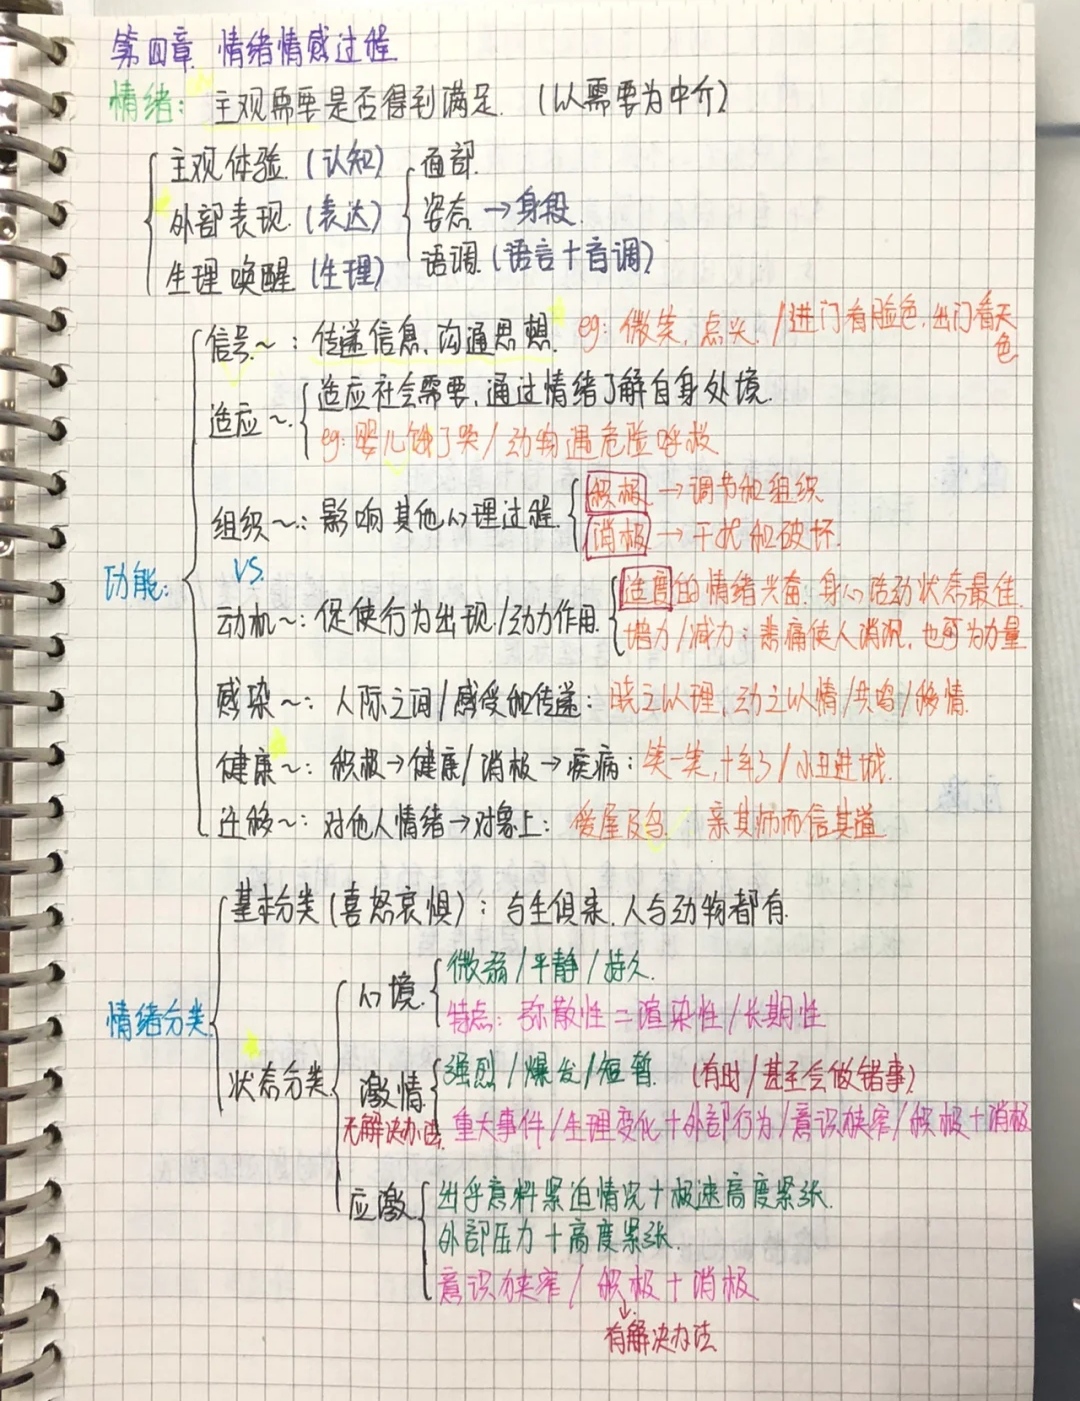 第四章 情绪情感过程
情绪：主观需要是否得到满足.（以需要为中介）
主观体验.（认知） 面部.
外部表现.（表达） 姿态→身段.
生理唤醒（生理） 语调.（语言+音调）
信号～：传递信息、沟通思想. eg：微笑、点头. /进门看脸色、出门看天色
适应～. 适应社会需要、通过情绪了解自身处境.
eg：婴儿饿了哭/动物遇危险呼救
组织～：影响其他心理过程. 积极→调节和组织
消极→干扰和破坏.
VS.
功能：
动机～：促使行为出现/动力作用. 适度的情绪兴奋、身心活动状态最佳.
增力/减力：悲痛使人消沉，也可为力量
感染～：人际之间/感受和传递：晓之以理、动之以情/共鸣/移情.
健康～：积极→健康/消极→疾病：笑一笑，十年少/小丑进城.
迁移～：对他人情绪→对象上：爱屋及乌. 亲其师而信其道
基本分类（喜怒哀惧）：与生俱来、人与动物都有.
情绪分类.
状态分类.
心境. 微弱/平静/持久.
特点：弥散性=渲染性/长期性
激情 强烈/爆发/短暂. （有时/甚至会做错事）
无解决办法. 重大事件/生理变化+外部行为/意识狭窄/积极+消极
应激 出乎意料紧迫情况+极速高度紧张.
外部压力+高度紧张.
意识狭窄/积极+消极
↓
有解决办法